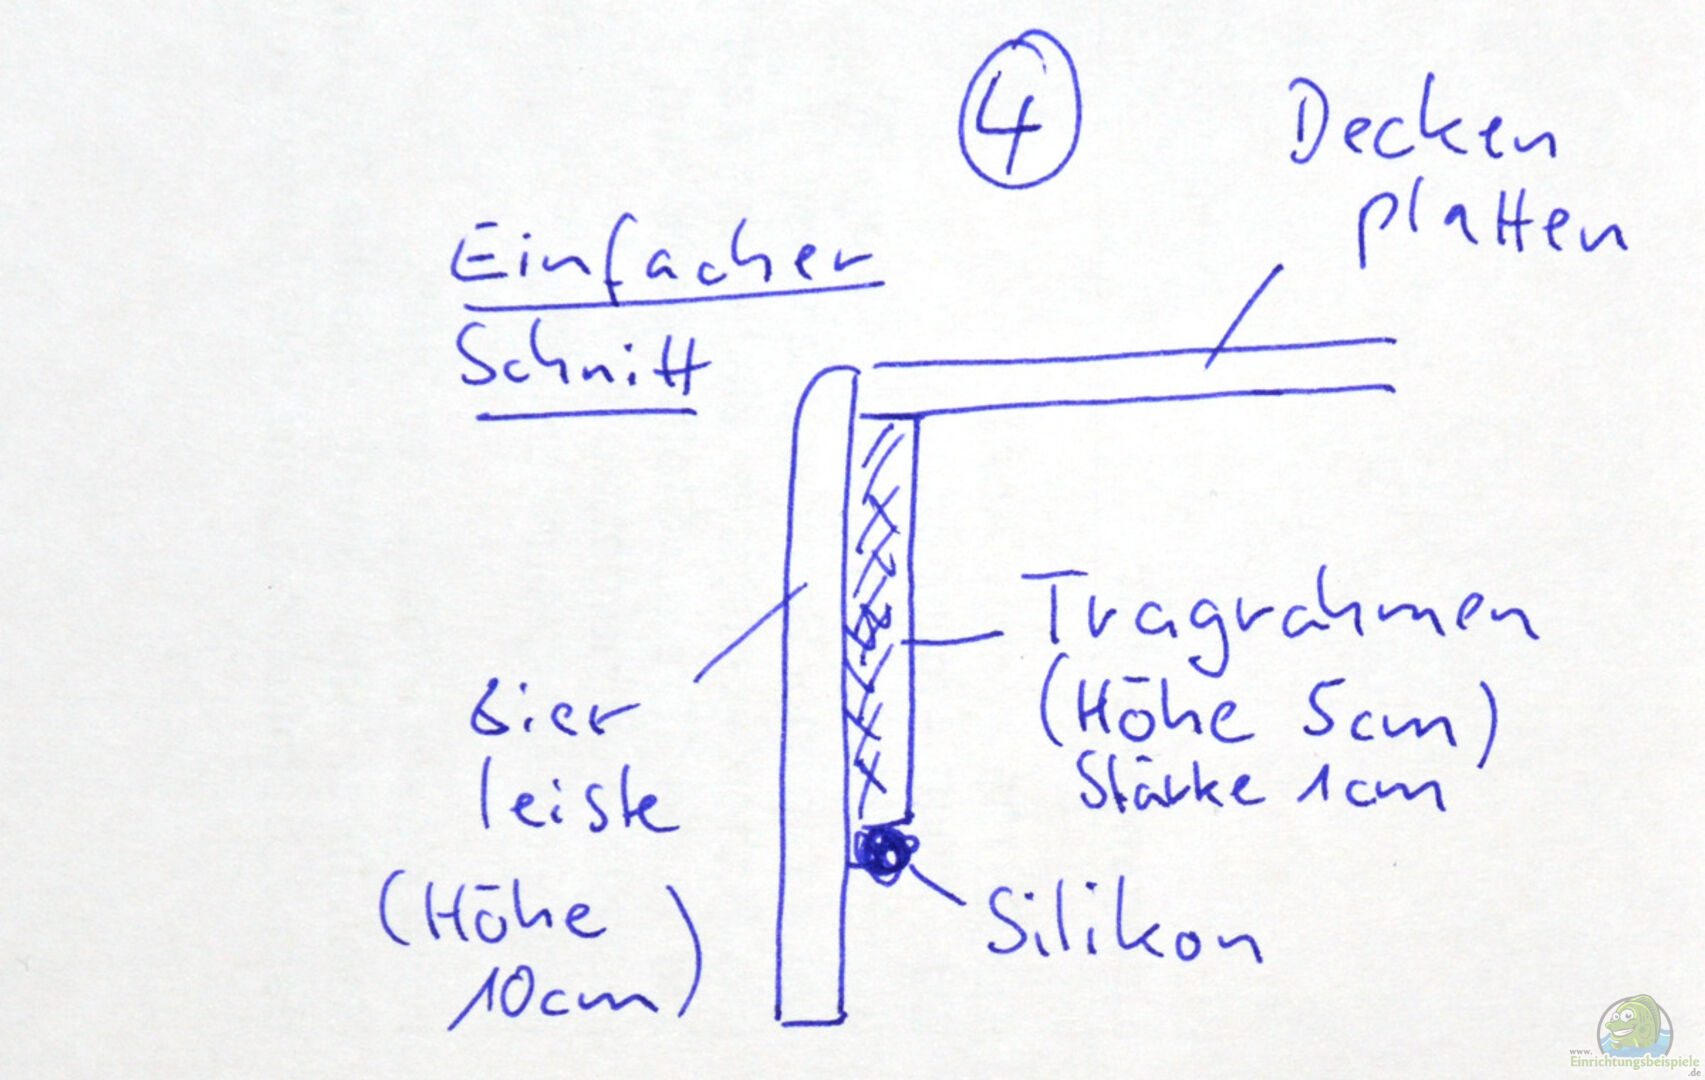 4
Decken
platten
Einfacher
Schnitt
Tragrahmen
(Höhe 5cm)
Stärke 1cm
Zier
leiste
(Höhe
10cm)
Silikon
www.
Einrichtungsbeispiele
.de